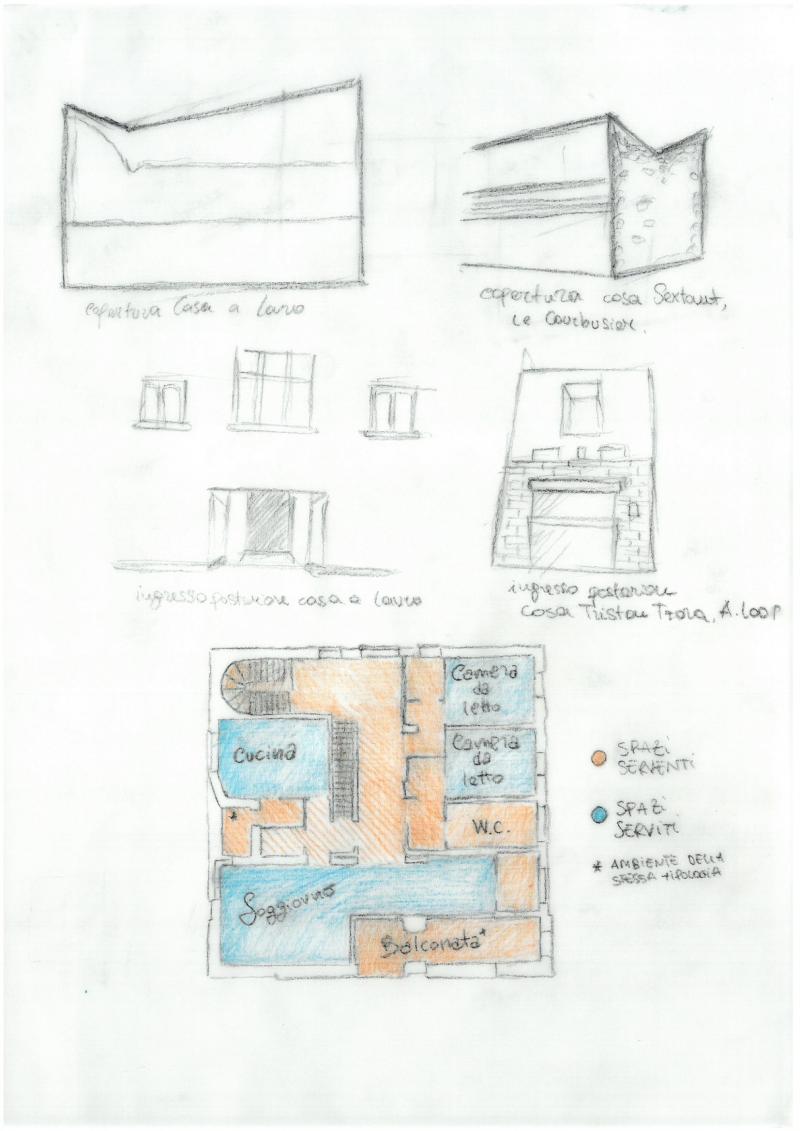 copertura Casa a Lavro
copertura casa Sextant,
Le Courbusier.
ingresso posteriore casa a Lavro
ingresso posteriore
Casa Tristan Tzara, A. Loop
Camera
da
letto
Cucina
Camera
da
letto
*
W.C.
Soggiorno
Balconata*
SPAZI
SERVENTI
SPAZI
SERVITI
* AMBIENTE DELLA
STESSA TIPOLOGIA